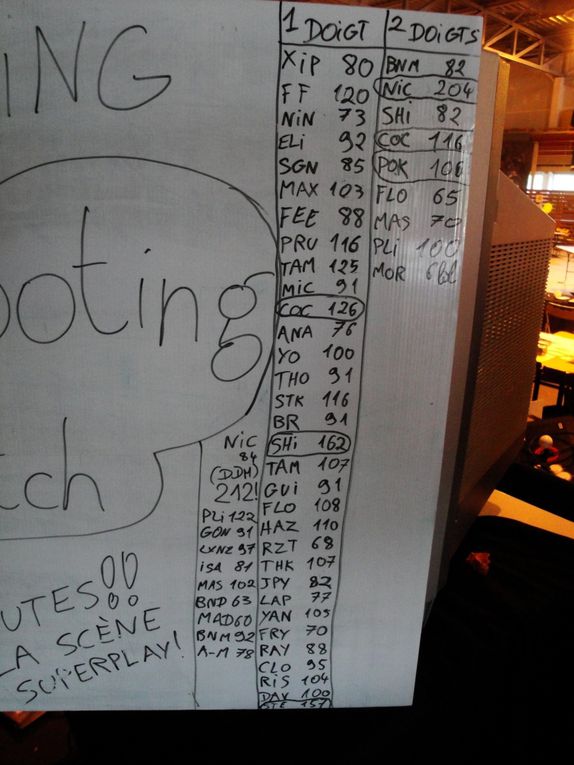 ING
ooting
tch
UTES!!
LA SCÈNE
SUPERPLAY!
NiC
84
(DDH)
212!
PLi 122
GON 91
LYNZ 97
iSA 81
MAS 102
BND 63
MAD 60
BNM 92
A-M 78
1 DOiGT
XiP 80
FF 120
NiN 73
ELi 92
SGN 85
MAX 103
FEE 88
PRU 116
TAM 125
MiC 91
COC 126
ANA 76
YO 100
THO 91
STK 116
BR 91
SHi 162
TAM 107
GUi 91
FLO 108
HAZ 110
RZT 68
THK 107
JPY 82
LAP 77
YAN 105
FRY 70
RAY 88
CLO 95
RiS 104
DAV 100
STE 157
2 DOiGTS
BNM 82
NiC 204
SHi 82
COC 116
POK 106
FLO 65
MAS 70
PLi 100
MOR